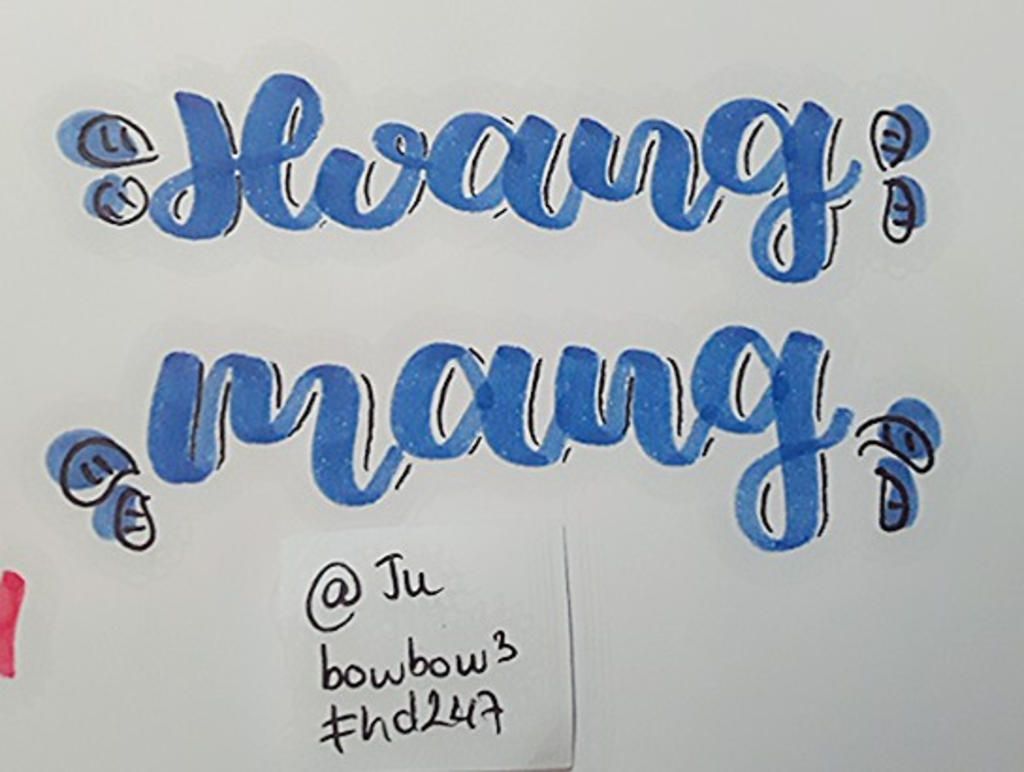 Hwang
mang
@Ju
bowbow3
#hd247